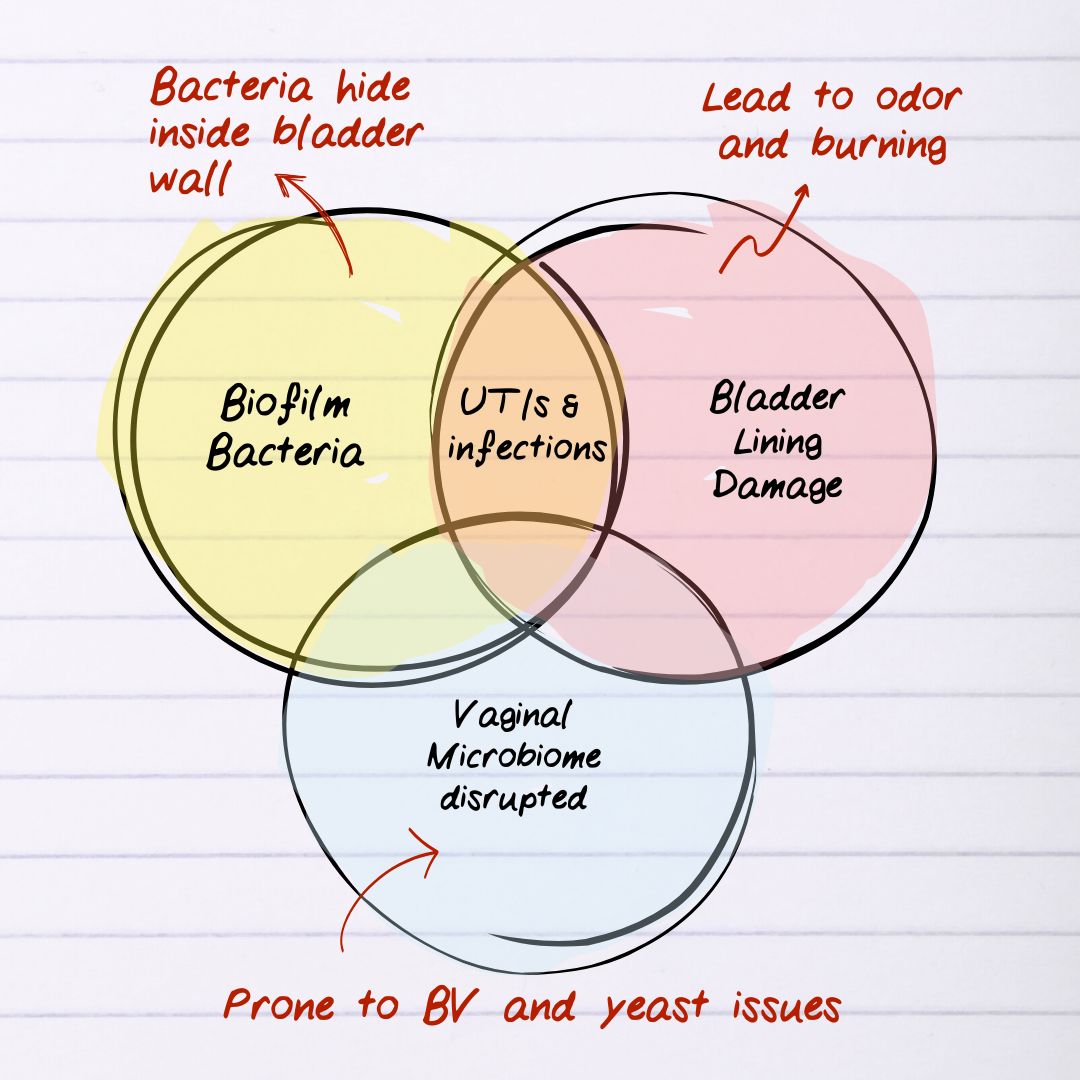 Bacteria hide
inside bladder
wall
Lead to odor
and burning
Biofilm
Bacteria
UTIs &
infections
Bladder
Lining
Damage
Vaginal
Microbiome
disrupted
Prone to BV and yeast issues